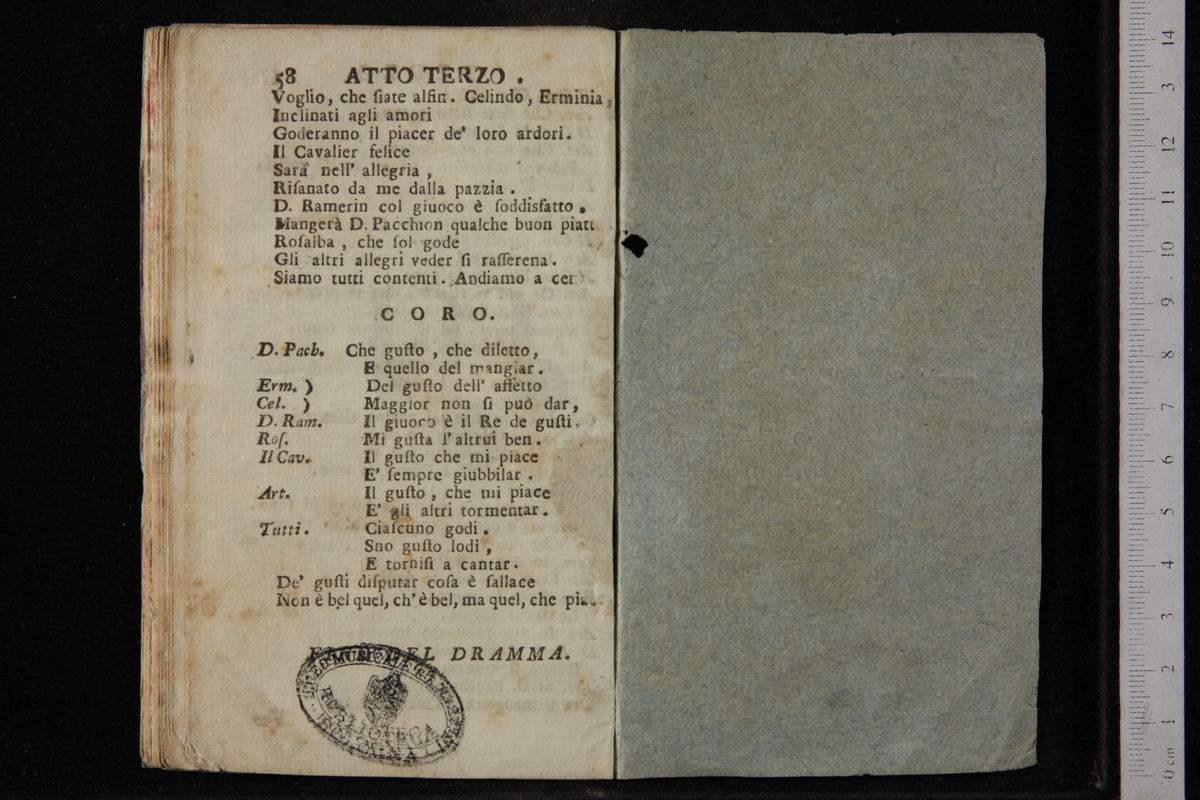 58 ATTO TERZO .
Voglio, che ſiate alfin. Celindo, Erminia,
Inclinati agli amori
Goderanno il piacer de' loro ardori.
Il Cavalier felice
Sarà nell' allegria ,
Riſanato da me dalla pazzia .
D. Ramerin col giuoco è ſoddisfatto .
Mangerà D. Pacchion qualche buon piatt
Roſalba , che ſol gode
Gli altri allegri veder ſi raſſerena .
Siamo tutti contenti . Andiamo a cer
C O R O.
D. Pach. Che guſto , che diletto,
E quello del mangiar .
Erm. ) Del guſto dell' affetto
Cel. ) Maggior non ſi può dar,
D. Ram. Il giuoco è il Re de guſti.
Roſ. Mi guſta l'altrui ben .
Il Cav. Il guſto che mi piace
E' ſempre giubbilar .
Art. Il guſto , che mi piace
E' gli altri tormentar .
Tutti . Ciaſcuno godi .
Sno guſto lodi ,
E torniſi a cantar .
De' guſti diſputar coſa è fallace
Non è bel quel, ch'è bel, ma quel, che pia
DEL DRAMMA.
MUSICALE
0 cm 1 2 3 4 5 6 7 8 9 10 11 12 3 14